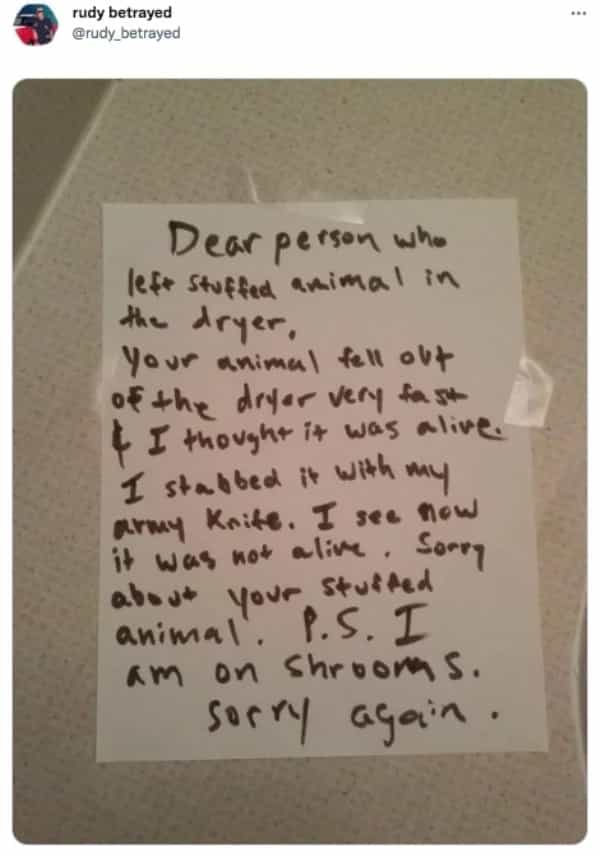 rudy betrayed
@rudy_betrayed
Dear person who
left stuffed animal in
the dryer,
Your animal fell out
of the dryer very fast
& I thought it was alive.
I stabbed it with my
army Knife. I see now
it was not alive. Sorry
about your stuffed
animal. P.S. I
am on Shrooms.
Sorry again.